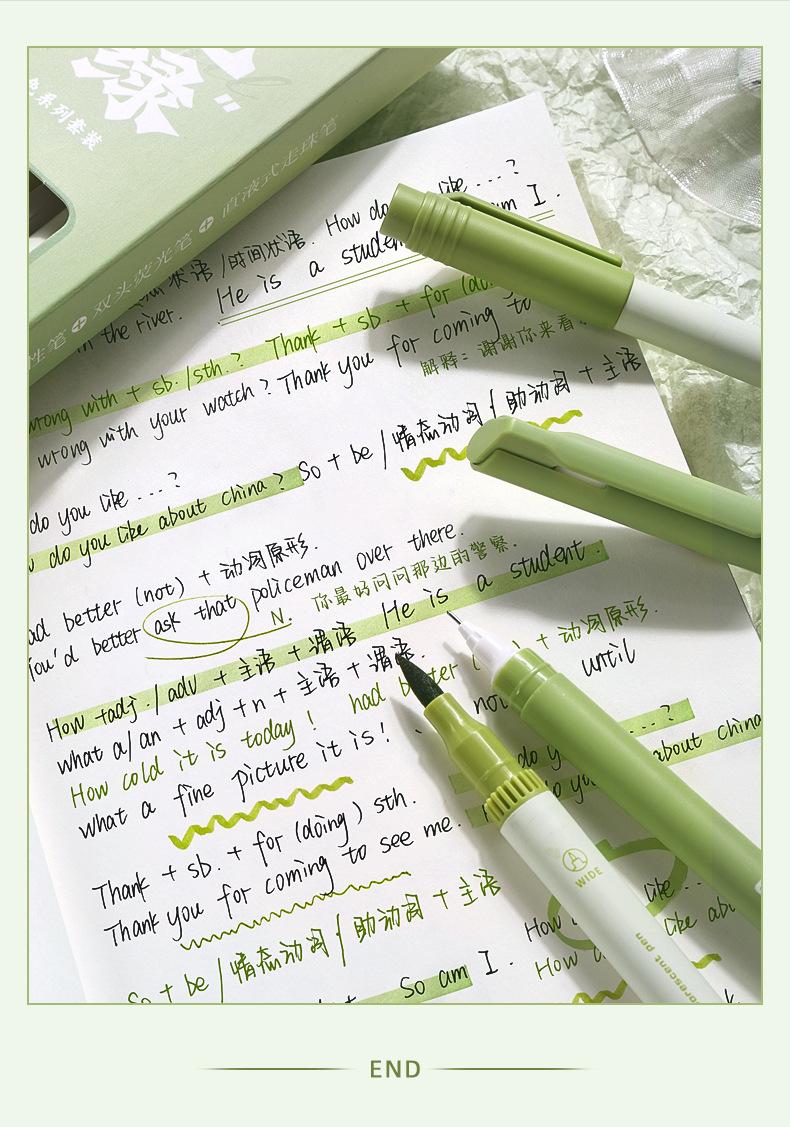 绿
色系列套装
性笔 + 双头荧光笔 + 直液式走珠笔
状语/时间状语. How do like ...?
in the river. He is a student am I.
wrong with + sb./sth.? Thank + sb. + for (do
wrong with your watch? Thank you for coming to
解释: 谢谢你来看
do you like ...? So + be / 情态动词 / 助动词 + 主语
do you like about china?
better (not) + 动词原形.
You'd better ask that policeman over there.
N. 你最好问问那边的警察.
How +adj./adv + 主语 + 谓语 He is a student.
what a/an + adj + n + 主语 + 谓语.
How cold it is today! had better ( ) + 动词原形.
what a fine picture it is! not until
Thank + sb. + for (doing) sth. do you ...?
Thank you for coming to see me. do you about china
So + be / 情态动词 / 助动词 + 主语
How like ...
So am I. How like abo
WIDE
orescent pen
END